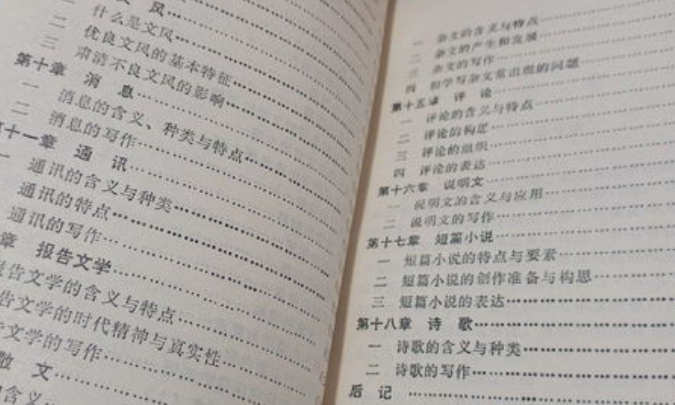 文 风
一 什么是文风
二 优良文风的基本特征
三 肃清不良文风的影响
第十章 消 息
一 消息的含义、种类与特点
二 消息的写作
十一章 通 讯
一 通讯的含义与种类
通讯的特点
通讯的写作
章 报告文学
报告文学的含义与特点
告文学的时代精神与真实性
文学的写作
散 文
的含义
一 杂文的含义与特点
二 杂文的产生和发展
三 杂文的写作
四 初学写杂文常出现的问题
第十五讲 评 论
一 评论的含义与特点
二 评论的构思
三 评论的组织
四 评论的表达
第十六章 说明文
一 说明文的含义与应用
二 说明文的写作
第十七章 短篇小说
一 短篇小说的特点与要素
二 短篇小说的创作准备与构思
三 短篇小说的表达
第十八章 诗 歌
一 诗歌的含义与种类
二 诗歌的写作
后 记